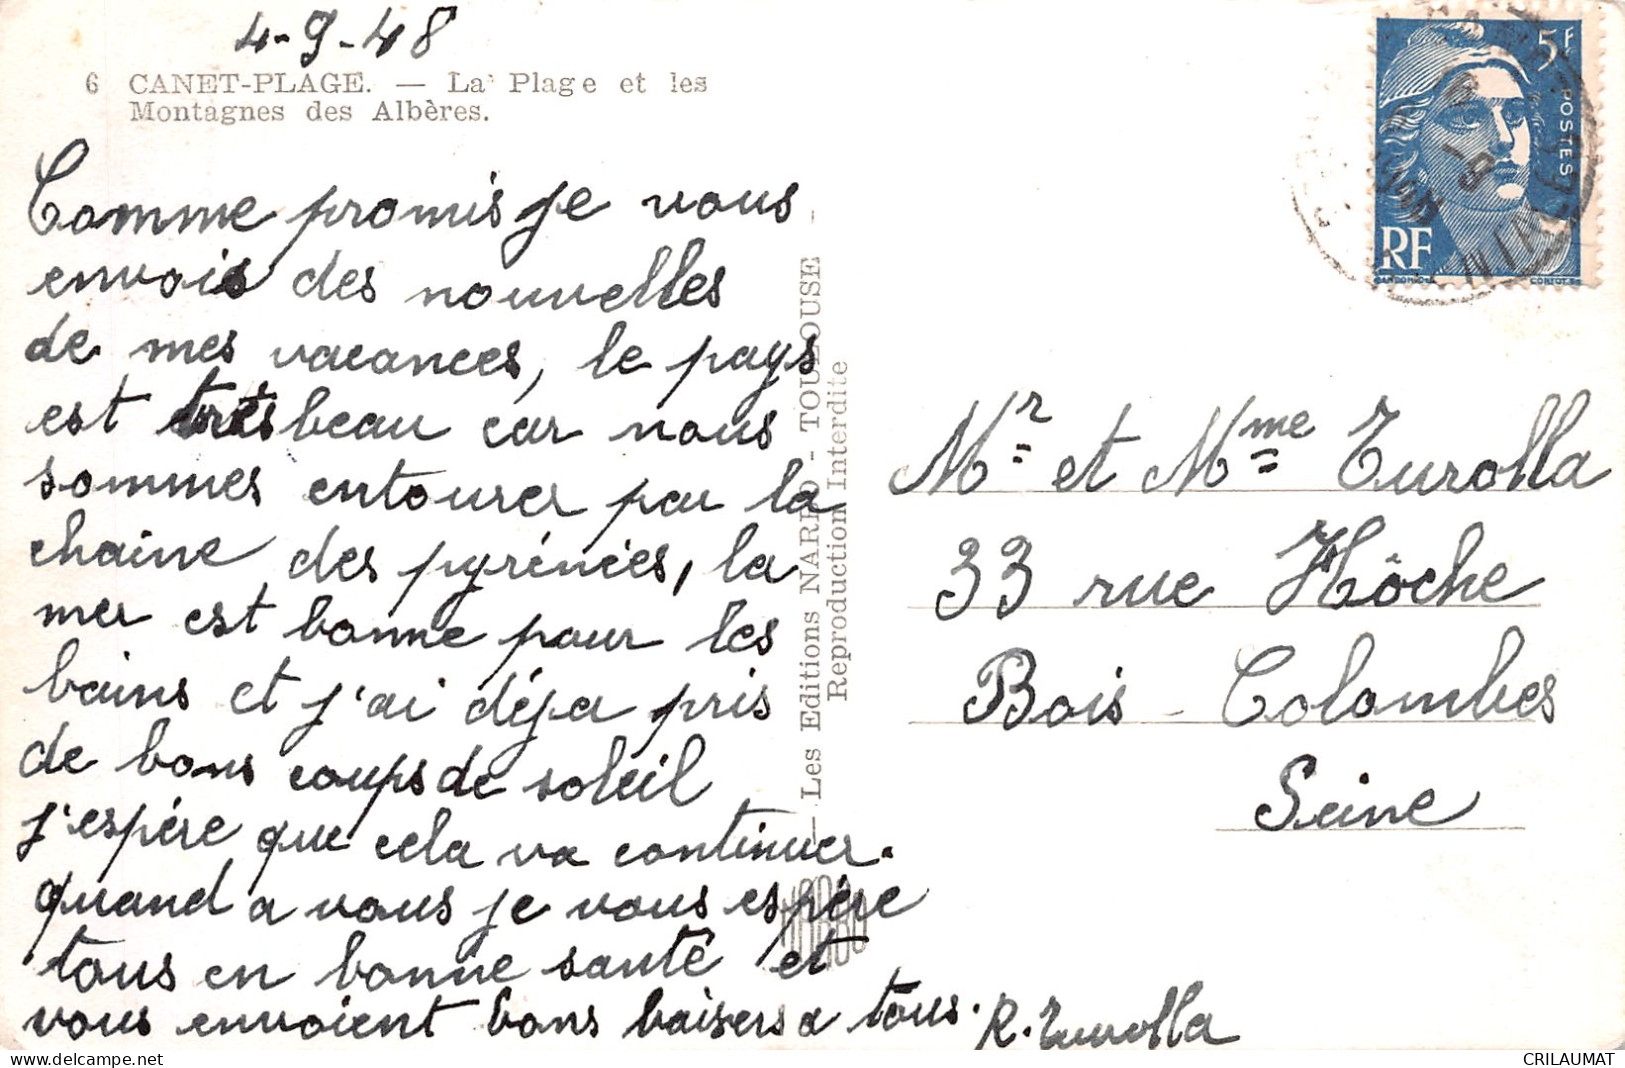 4-9-48
6 CANET-PLAGE. — La Plage et les
Montagnes des Albères.
Comme promis je vous
envois des nouvelles
de mes vacances, le pays
est très beau car nous
sommes entourer par la
chaine des pyrénées, la
mer est bonne pour les
bains et j'ai déja pris
de bons coups de soleil
j'espére que cela va continuer.
quand a vous je vous espére
tous en bonne santé et
vous envoient bons baisers a tous.
R. Turolla
— Les Editions NARBO - TOULOUSE -
Reproduction Interdite
5F
POSTES
RF
Mr et Mme Turolla
33 rue Hôche
Bois - Colombes
Seine
CRILAUMAT